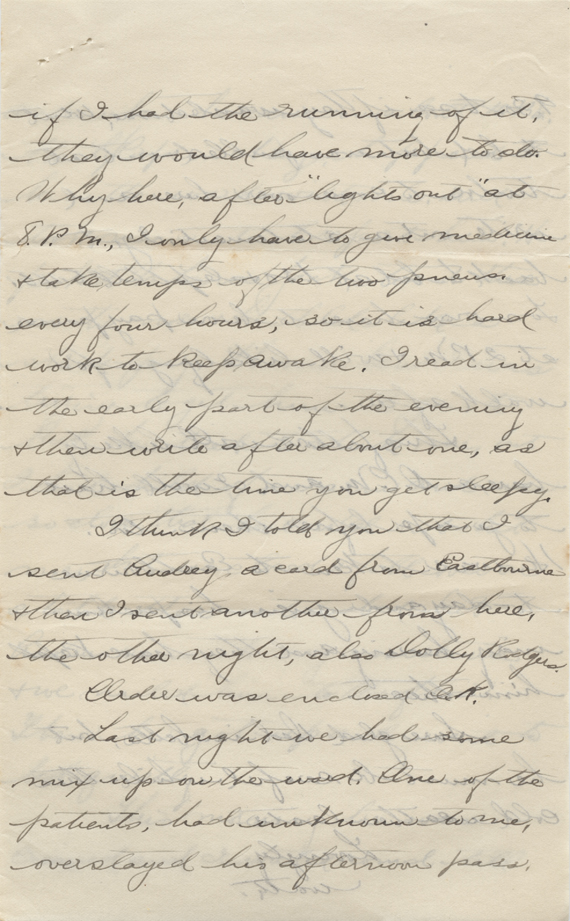 if I had the running of it,
they would have more to do.
Why here, after "lights out" at
8 P.M., I only have to give medicine
& take temps of the two pneus.
every four hours, so it is hard
work to keep awake. I read in
the early part of the evening
& then write after about one, as
that is the time you get sleepy.
I think I told you that I
sent Audrey a card from Eastbourne
& then I sent another from here,
the other night, also Dolly Rodgers.
Order was enclosed O.K.
Last night we had some
mix up on the ward. One of the
patients, had unknown to me,
overstayed his afternoon pass.